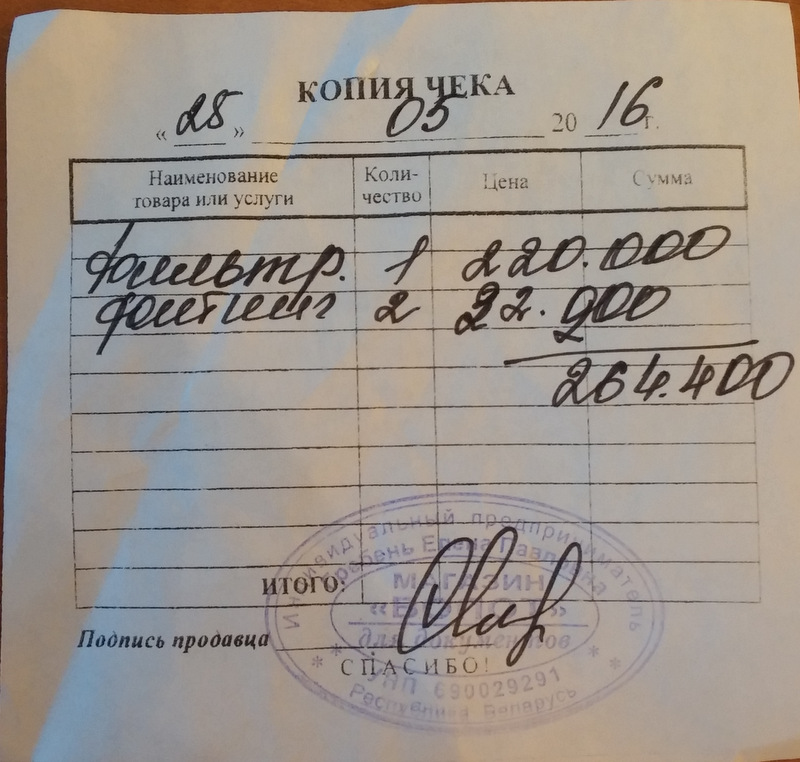 КОПИЯ ЧЕКА
« 25 » 05 20 16 г.
Наименование товара или услуги Коли-чество Цена Сумма
фильтр. 1 220.000
фитинг 2 22.200
264.400
ИТОГО:
Подпись продавца
СПАСИБО!
Индивидуальный предприниматель
Елена Павловна
МАГАЗИН
для документов
УНП 690029291
Республика Беларусь